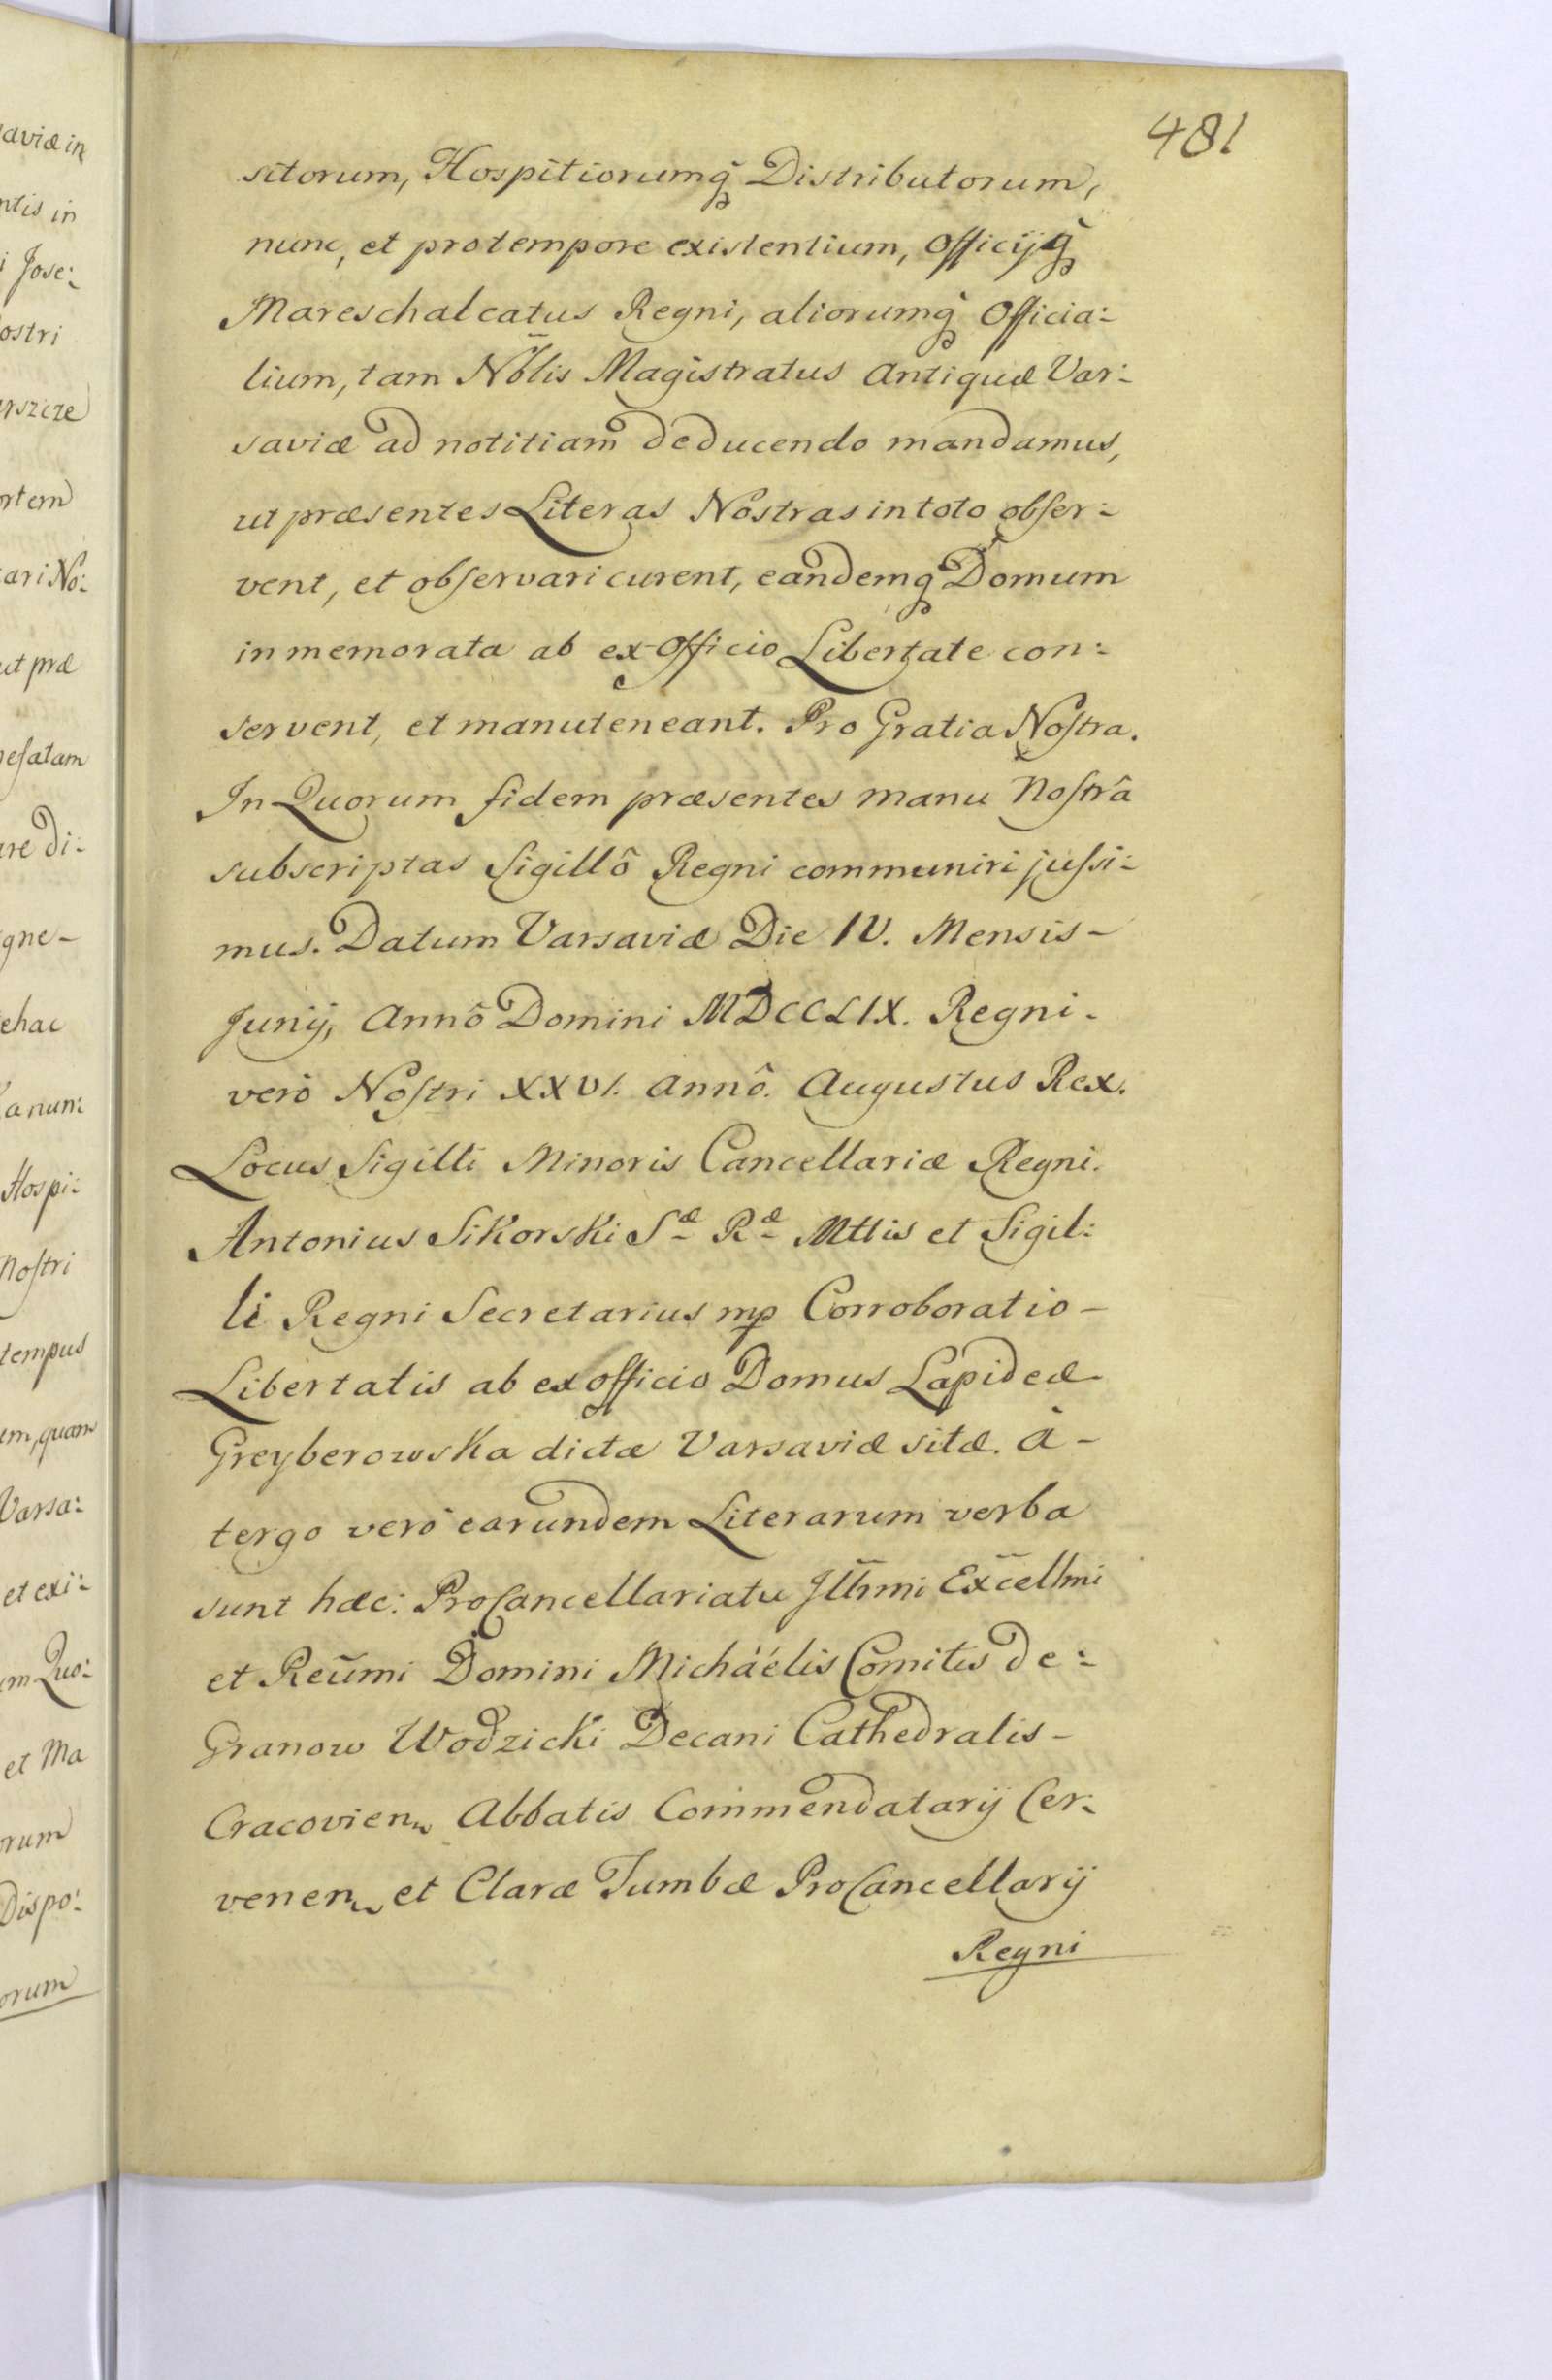 481
sitorum, Hospitiorumq̃ Distributorum,
nunc, et protempore existentium, Officijq̃
Mareschalcatus Regni, aliorumq̃ Officia:
lium, tam Nõlis Magistratus Antiquæ Var:
saviæ ad notitiam deducendo mandamus,
ut præsentes Literas Nostras in toto obser:
vent, et observari curent, eandemq̃ Domum
in memorata ab ex Officio Libertate con:
servent, et manuteneant. Pro Gratia Nostra.
In Quorum fidem præsentes manu Nostrâ
subscriptas Sigillô Regni communiri jussi:
mus. Datum Varsaviæ Die IV. Mensis-
Junij, Annô Domini MDCCLIX. Regni-
verò Nostri XXVI. annô. Augustus Rex.
Locus Sigilli Minoris Cancellariæ Regni.
Antonius Sikorski Sæ Ræ Mttis et Sigil:
li Regni Secretarius mp Corroboratio-
Libertatis ab ex officio Domus Lapideæ
Greyberowska dictæ Varsaviæ sitæ. à-
tergo verò earundem Literarum verba
sunt hæc: ProCancellariatu Jllmi Excellmi
et Reũmi Domini Michäélis Comitis de:
Granow Wodzicki Decani Cathedralis-
Cracovien. Abbatis Commendatarij Cer:
venen. et Claræ Tumbæ ProCancellarij
Regni
aviæ in
ntis in
i Jose:
ostri
rszcze
ortem
ari No:
ut præ
efatam
are di:
gne-
ehac
anum:
Hospi:
Nostri
tempus
um, quam
Varsa:
et exi:
um Quo:
et Ma
orum
Dispo:
orum